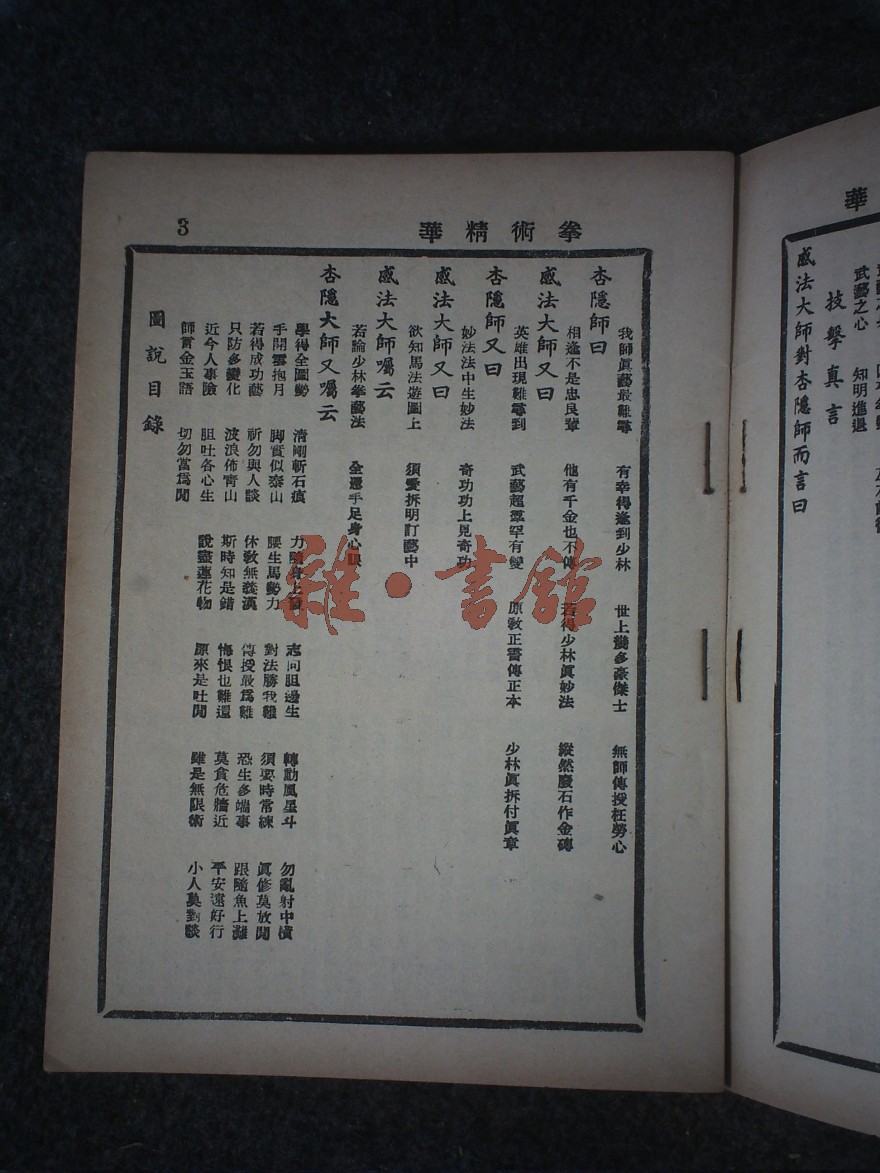 華
武藝之心 知明進退
技擊真言
感法大師對杏隱師而言曰
拳術精華
3
杏隱師曰
我師眞藝最難尋 有幸得逢到少林 世上幾多豪傑士 無師傳授枉勞心
感法大師又曰
相逢不是忠良輩 他有千金也不傳 若得少林眞妙法 縱然廢石作金磚
杏隱師又曰
英雄出現難尋到 武藝超羣罕有變 原敎正書傳正本 少林眞拆付眞章
感法大師又曰
妙法法中生妙法 奇功功上見奇功
欲知馬法遊圖上 須愛拆明訂藝中
感法大師囑云
若論少林拳藝法 全憑手足身心眼
杏隱大師又囑云
學得全圖勢 清剛斬石痕 力隨身上 志向胆邊生 轉動風星斗 勿亂射中橫
手開雲抱月 脚實似泰山 腰生馬勢力 對法勝我難 須要時常練 眞修莫放閒
若得成功藝 祈勿與人談 休敎無義漢 傳授最爲難 恐生多端事 跟隨魚上灘
只防多變化 波浪佈靑山 斯時知是錯 悔恨也難還 莫貪危牆近 平安遠好行
近今人事險 胆吐各心生 說盡蓮花物 原來是吐閒 雖是無限術 小人莫對談
師賞金玉語 切勿當爲閒
圖說目錄
雜·書館